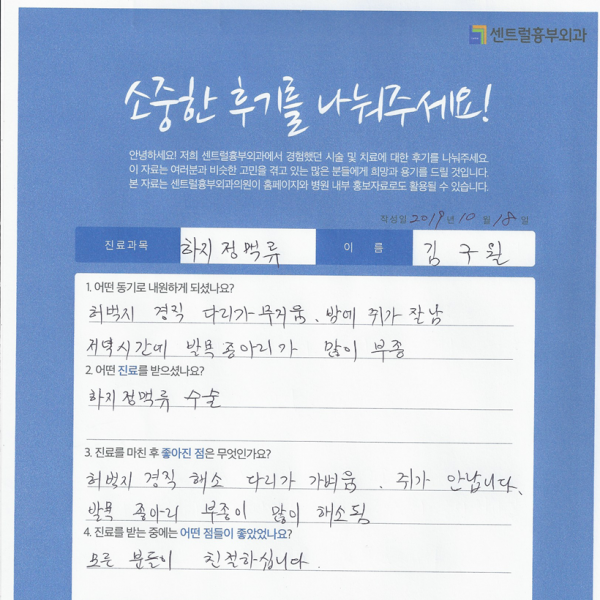 센트럴흉부외과
소중한 후기를 나눠주세요!
안녕하세요! 저희 센트럴흉부외과에서 경험했던 시술 및 치료에 대한 후기를 나눠주세요.
이 자료는 여러분과 비슷한 고민을 겪고 있는 많은 분들에게 희망과 용기를 드릴 것입니다.
본 자료는 센트럴흉부외과의원이 홈페이지와 병원 내부 홍보자료로도 활용될 수 있습니다.
작성일 2019년 10월 18일
진료과목 하지정맥류 이 름 김구월
1. 어떤 동기로 내원하게 되셨나요?
허벅지 경직 다리가 무거움. 밤에 쥐가 잘남
저역시간에 발목 종아리가 많이 부종
2. 어떤 진료를 받으셨나요?
하지정맥류 수술
3. 진료를 마친 후 좋아진 점은 무엇인가요?
허벅지 경직 해소 다리가 가벼움. 쥐가 안납니다.
발목 종아리 부종이 많이 해소됨
4. 진료를 받는 중에는 어떤 점들이 좋았었나요?
모른 분들이 친절하십니다.